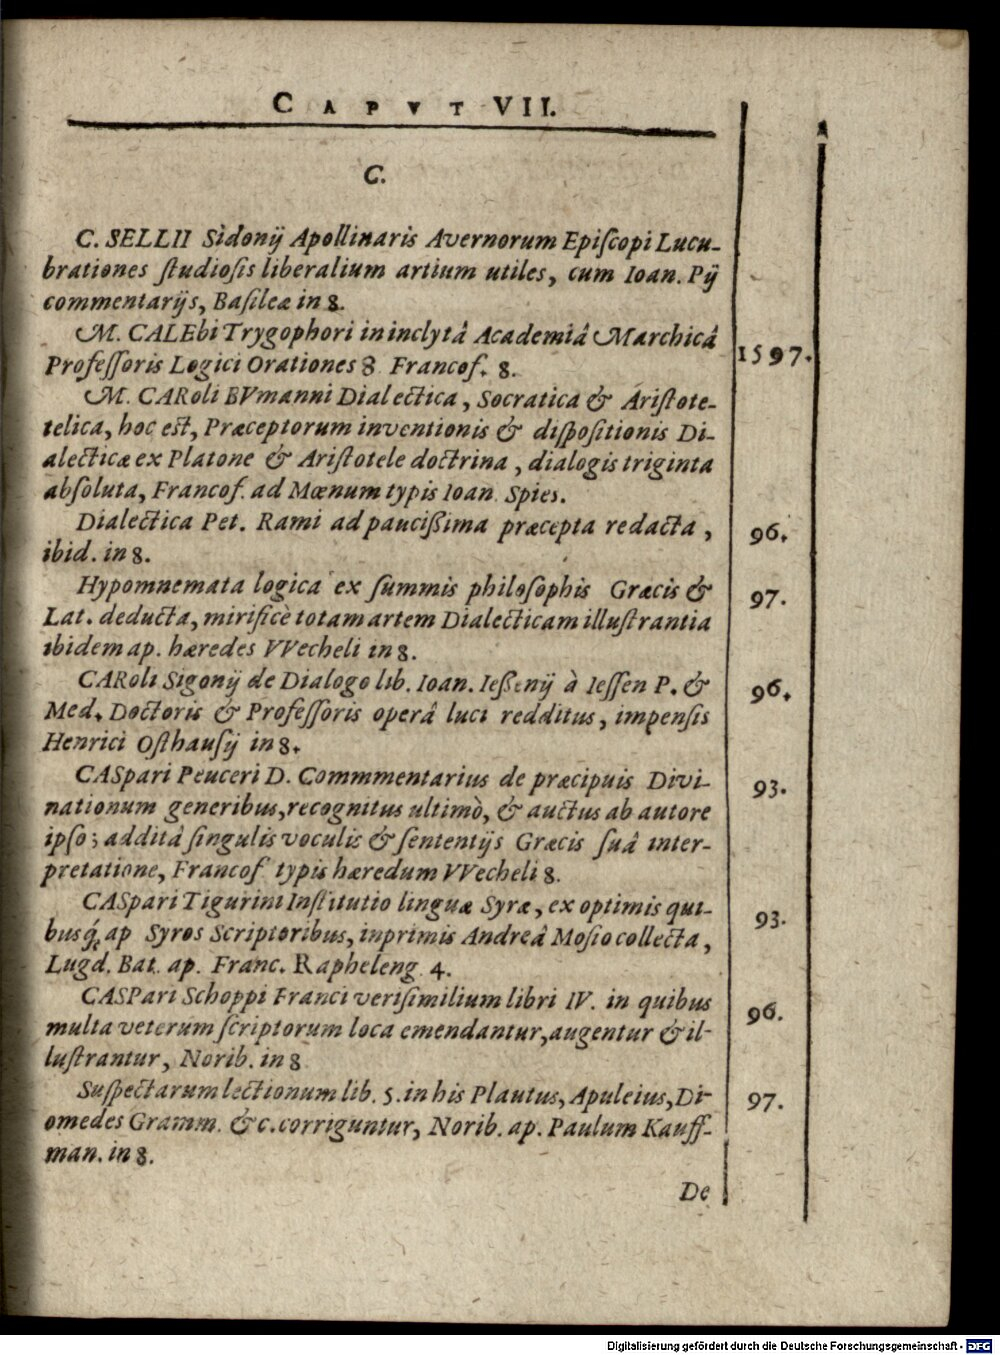 CAPVT VII.
C.
C. SELLII Sidonij Apollinaris Avernorum Episcopi Lucu-
brationes studiosis liberalium artium utiles, cum Ioan. Pij
commentarijs, Basileæ in 8.
M. CALEbi Trygophori in inclytâ Academiâ Marchicâ
Professoris Logici Orationes 8 Francof. 8. 1597.
M. CARoli BVmanni Dialectica, Socratica & Aristote-
telica, hoc est, Præceptorum inventionis & dispositionis Di-
alecticæ ex Platone & Aristotele doctrina, dialogis triginta
absoluta, Francof. ad Mœnum typis Ioan. Spies.
Dialectica Pet. Rami ad paucißima præcepta redacta, 96.
ibid. in 8.
Hypomnemata logica ex summis philosophis Græcis & 97.
Lat. deducta, mirificè totam artem Dialecticam illustrantia
ibidem ap. hæredes VVecheli in 8.
CARoli Sigonij de Dialogo lib. Ioan. Ießenij à Iessen P. & 96.
Med. Doctoris & Professoris operâ luci redditus, impensis
Henrici Osthausij in 8.
CASpari Peuceri D. Commmentarius de præcipuis Divi- 93.
nationum generibus, recognitus ultimò, & auctus ab autore
ipso; additâ singulis voculis & sententijs Græcis suâ inter-
pretatione, Francof typis hæredum VVecheli 8.
CASpari Tigurini Institutio linguæ Syræ, ex optimis qui- 93.
busq́; ap Syros Scriptoribus, inprimis Andreâ Mosio collecta,
Lugd. Bat. ap. Franc. Rapheleng. 4.
CASPari Schoppi Franci verisimilium libri IV. in quibus 96.
multa veterum scriptorum loca emendantur, augentur & il-
lustrantur, Norib. in 8
Suspectarum lectionum lib. 5. in his Plautus, Apuleius, Di- 97.
omedes Gramm. &c. corriguntur, Norib. ap. Paulum Kauff-
man. in 8.
De
Digitalisierung gefördert durch die Deutsche Forschungsgemeinschaft - DFG